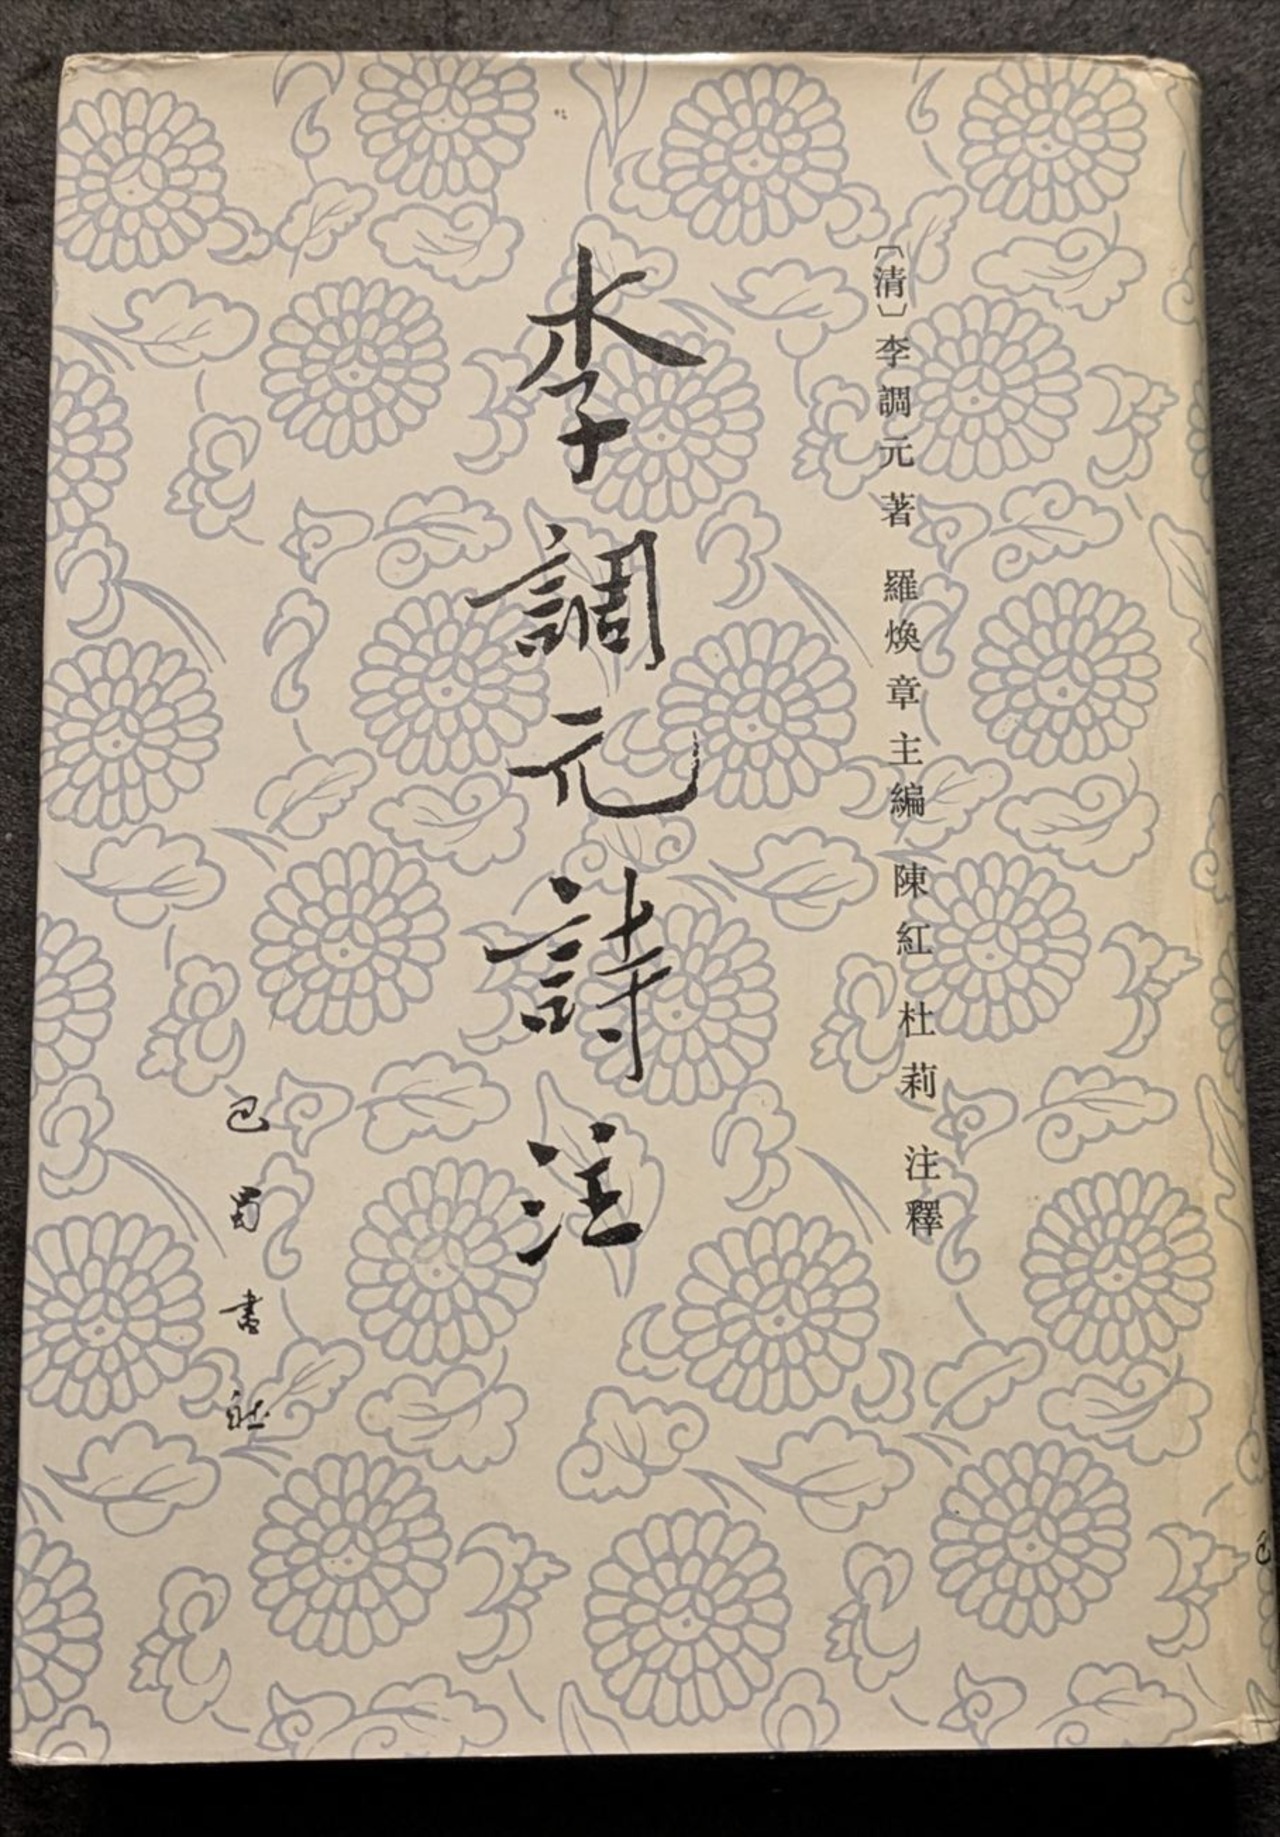 〔清〕李調元著 羅煥章主編 陳紅 杜莉 注釋
李調元詩注
巴蜀書社